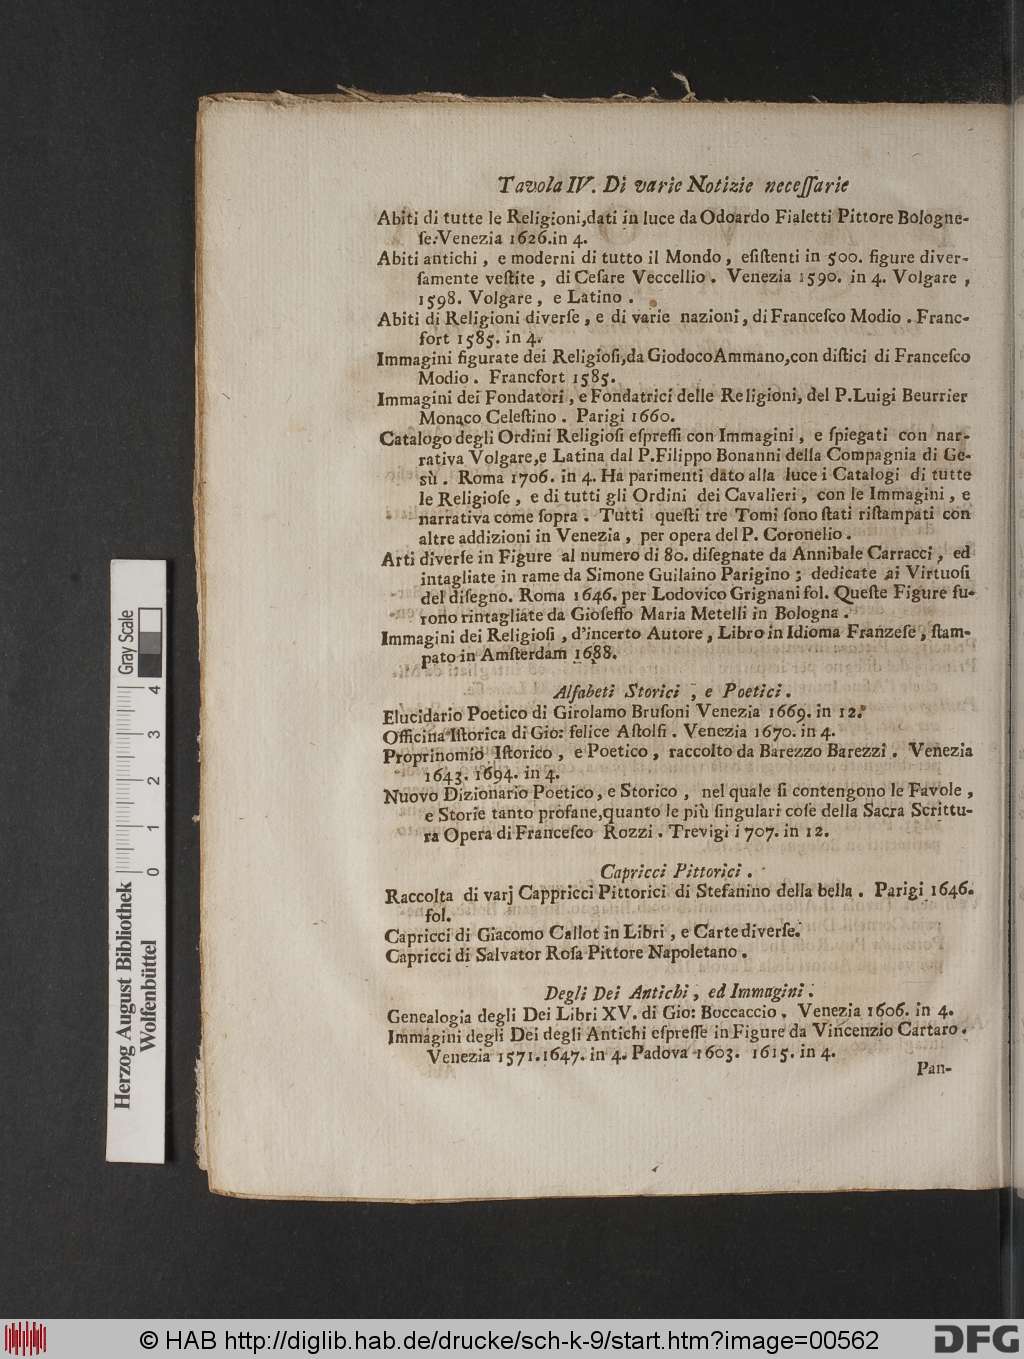 Tavola IV. Di varie Notizie neceſſarie
Abiti di tutte le Religioni,dati in luce da Odoardo Fialetti Pittore Bologne-
ſe:Venezia 1626.in 4.
Abiti antichi , e moderni di tutto il Mondo , eſiſtenti in 500. figure diver-
ſamente veſtite , di Ceſare Veccellio . Venezia 1590. in 4. Volgare ,
1598. Volgare , e Latino .
Abiti di Religioni diverſe , e di varie nazioni, di Franceſco Modio . Franc-
fort 1585. in 4.
Immagini figurate dei Religioſi,da Giodoco Ammano,con diſtici di Franceſco
Modio . Francfort 1585.
Immagini dei Fondatori , e Fondatrici delle Religioni, del P.Luigi Beurrier
Monaco Celeſtino . Parigi 1660.
Catalogo degli Ordini Religioſi eſpreſſi con Immagini , e ſpiegati con nar-
rativa Volgare,e Latina dal P.Filippo Bonanni della Compagnia di Ge-
sù . Roma 1706. in 4. Ha parimenti dato alla luce i Catalogi di tutte
le Religioſe , e di tutti gli Ordini dei Cavalieri , con le Immagini , e
narrativa come ſopra . Tutti queſti tre Tomi ſono ſtati riſtampati con
altre addizioni in Venezia , per opera del P. Coronelio .
Arti diverſe in Figure al numero di 80. diſegnate da Annibale Carracci , ed
intagliate in rame da Simone Guilaino Parigino ; dedicate ai Virtuoſi
del diſegno. Roma 1646. per Lodovico Grignani fol. Queſte Figure fu-
rono rintagliate da Gioſeffo Maria Metelli in Bologna .
Immagini dei Religioſi , d'incerto Autore , Libro in Idioma Franzeſe , ſtam-
pato in Amſterdam 1688.
Alfabeti Storici , e Poetici .
Elucidario Poetico di Girolamo Bruſoni Venezia 1669. in 12.
Officina Iſtorica di Gio: felice Aſtolfi . Venezia 1670. in 4.
Proprinomio Iſtorico , e Poetico , raccolto da Barezzo Barezzi . Venezia
1643. 1694. in 4.
Nuovo Dizionario Poetico, e Storico , nel quale ſi contengono le Favole ,
e Storie tanto profane,quanto le più ſingulari coſe della Sacra Scrittu-
ra Opera di Franceſco Rozzi . Trevigi i 707. in 12.
Capricci Pittorici .
Raccolta di varj Cappricci Pittorici di Stefanino della bella . Parigi 1646.
fol.
Capricci di Giacomo Callot in Libri , e Carte diverſe.
Capricci di Salvator Roſa Pittore Napoletano .
Degli Dei Antichi , ed Immagini .
Genealogia degli Dei Libri XV. di Gio: Boccaccio . Venezia 1606. in 4.
Immagini degli Dei degli Antichi eſpreſſe in Figure da Vincenzio Cartaro .
Venezia 1571.1647. in 4. Padova 1603. 1615. in 4.
Pan-
Herzog August Bibliothek
Wolfenbüttel
Gray Scale
0 1 2 3 4
© HAB http://diglib.hab.de/drucke/sch-k-9/start.htm?image=00562
DFG